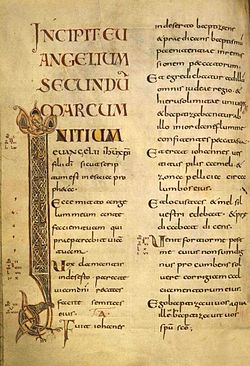 INCIPIT EU
ANGELIUM
SECUNDŪ
MARCUM
INITIUM
euangelii ihu xpi
filii di sicut scrip
tum est in esaia pro
pheta
Ecce mitto ange
lum meum ante
faciem tuam qui
praeparabit uiā
tuam
Uox clamantis
in deserto parate
uiam dni rectas
facite semitas
eius
Fuit iohannes
in deserto baptizans
et praedicans baptismū
paenitentiae in remis
sionem peccatorum
Et egrediebatur ad illū
omnis iudaeae regio et
hierosolimitae uniuersi
et baptizabantur ab
illo in iordane flumine
confitentes peccata sua
Et erat iohannes ues
titus pilis cameli et
zona pellicia circa
lumbos eius
Et locustas et mel sil
uestre edebat et prae
dicabat dicens
Uenit fortior me post
me cuius non sum dig
nus procumbens sol
uere corrigiam cal
ciamentorum eius
Ego baptizaui uos aqua
ille baptizabit uos
spu sco